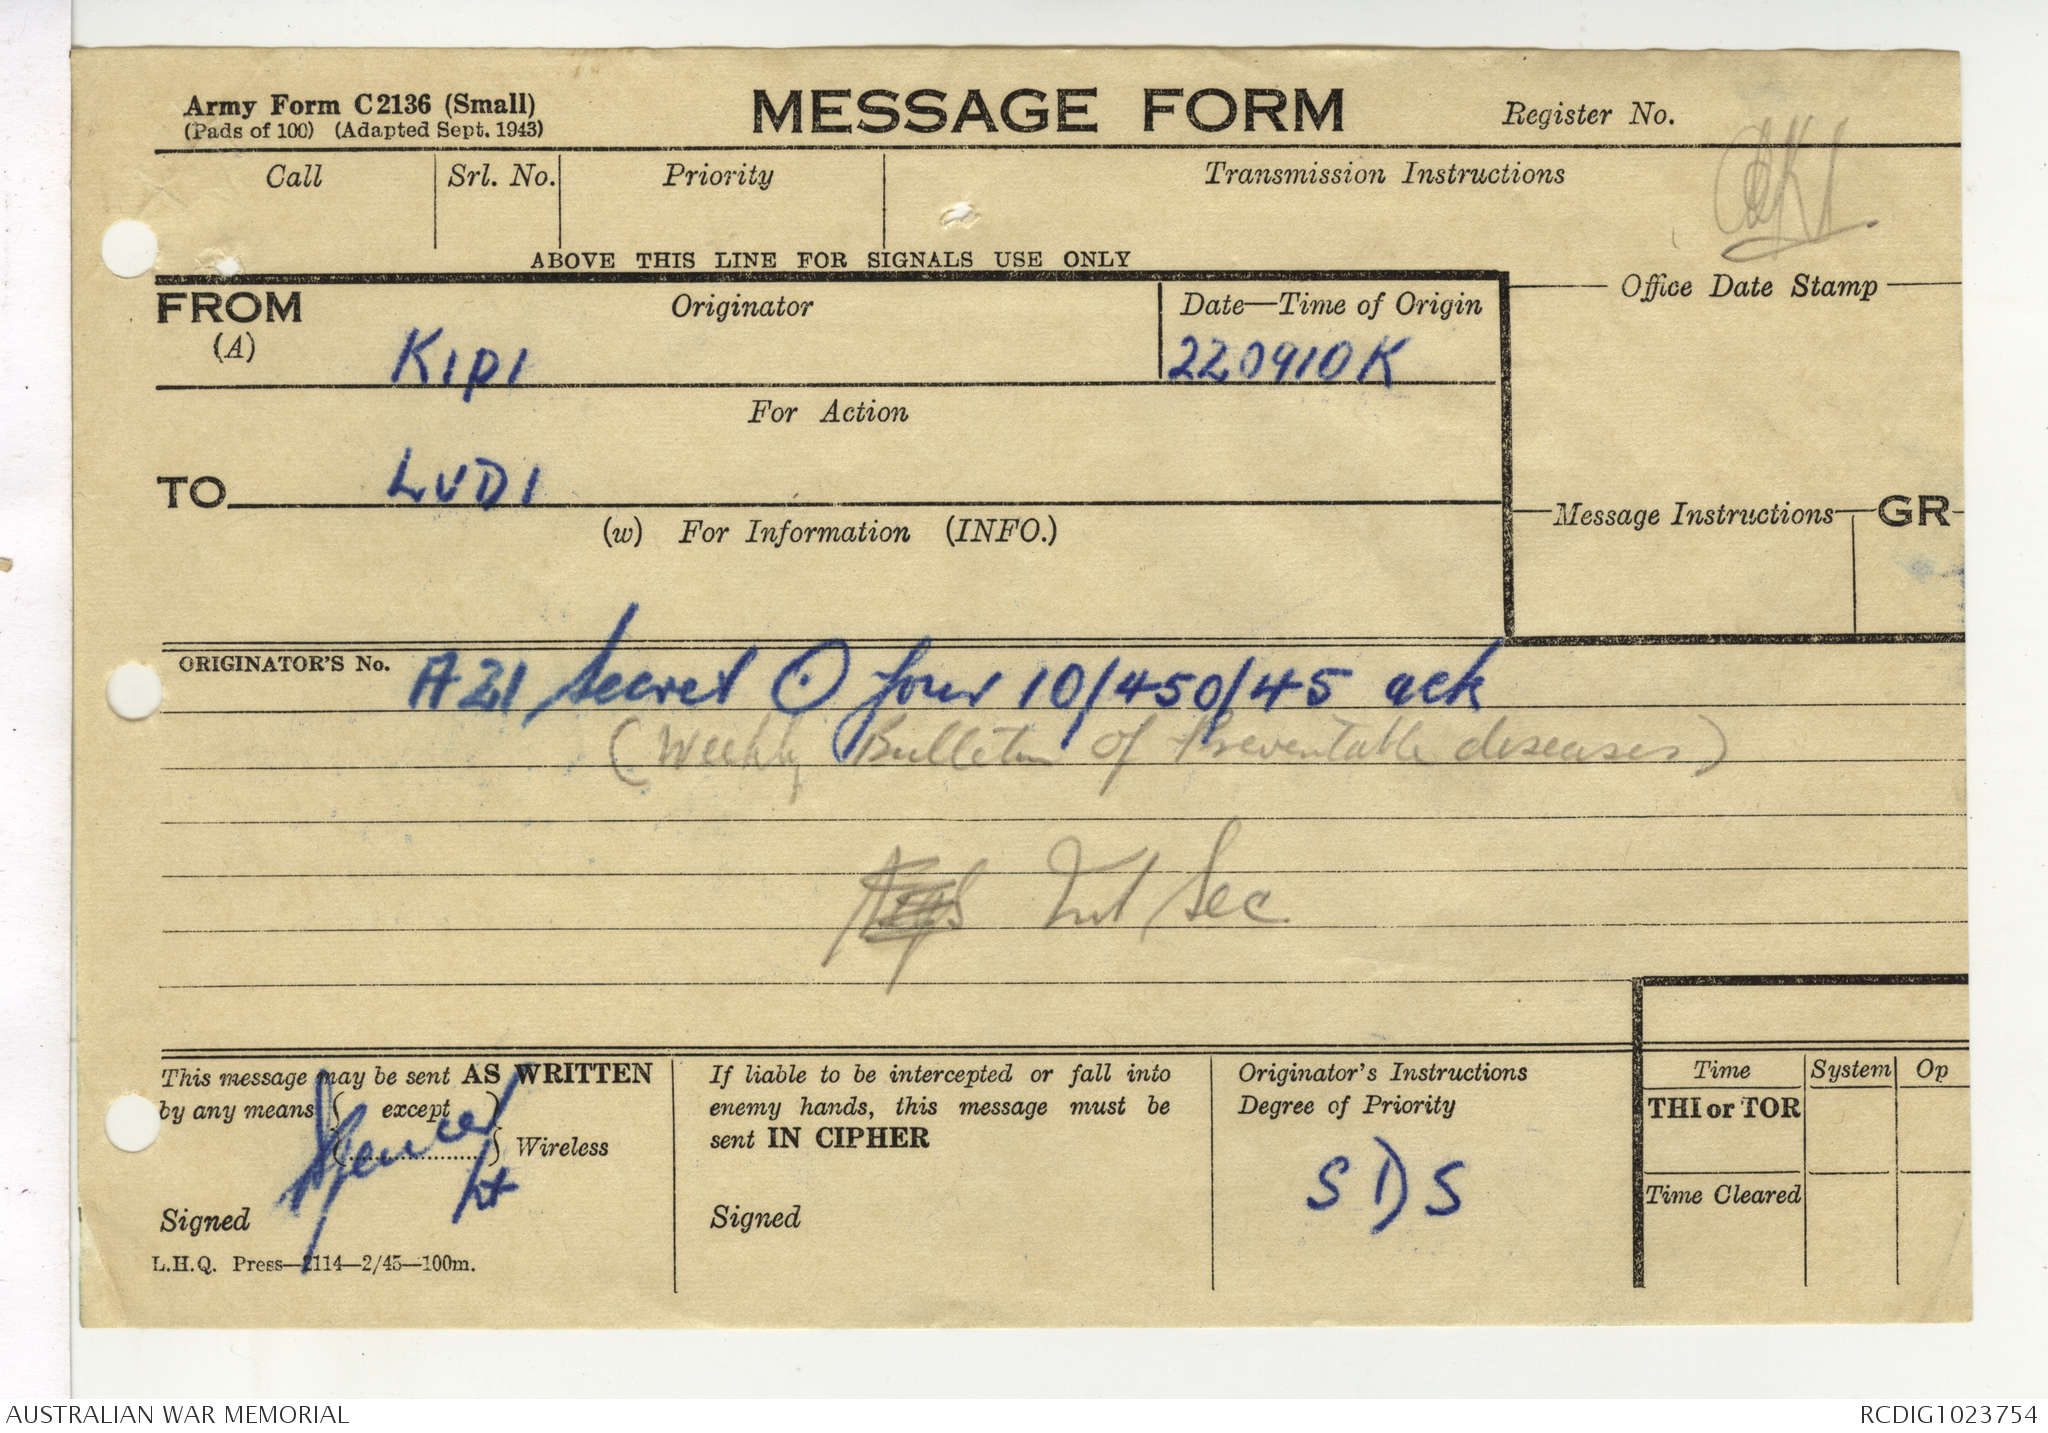 Army Form C2136 (Small)
(Pads of 100) (Adapted Sept. 1943)
MESSAGE FORM
Register No.
Call
Srl. No.
Priority
Transmission Instructions
ABOVE THIS LINE FOR SIGNALS USE ONLY
FROM
(A)
Originator
KIPI
Date—Time of Origin
220910K
Office Date Stamp
For Action
TO
LUDI
(w) For Information (INFO.)
Message Instructions
GR
ORIGINATOR'S No.
A21 Secret your 10/450/45 ack
(Weekly Bulletin of Preventable diseases)
Int Sec
This message may be sent AS WRITTEN
by any means ( except )
(......................) Wireless
Spencer
Lt
Signed
If liable to be intercepted or fall into
enemy hands, this message must be
sent IN CIPHER
Signed
Originator's Instructions
Degree of Priority
SDS
Time
System
Op
THI or TOR
Time Cleared
L.H.Q. Press—2114—2/45—100m.
AUSTRALIAN WAR MEMORIAL
RCDIG1023754